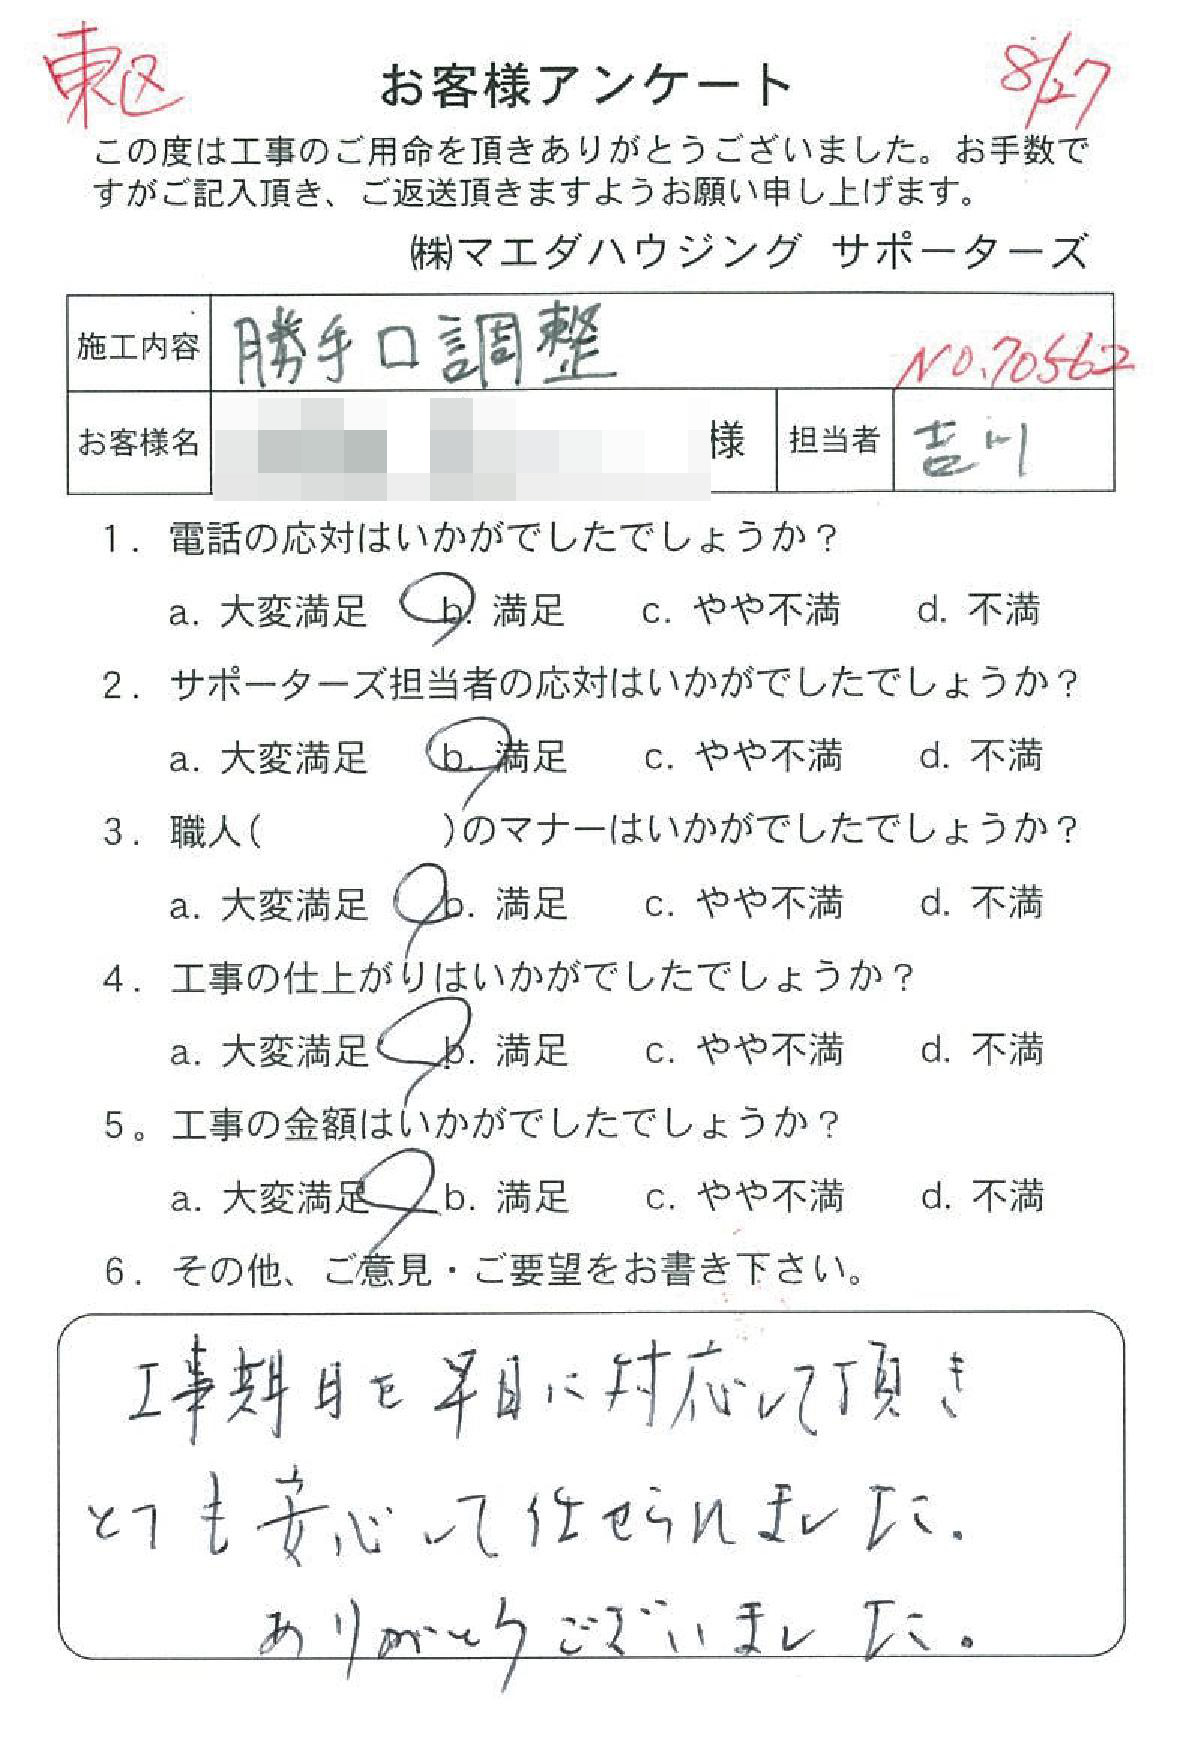 東区
8/27
お客様アンケート
この度は工事のご用命を頂きありがとうございました。お手数で
すがご記入頂き、ご返送頂きますようお願い申し上げます。
㈱マエダハウジング サポーターズ
施工内容 勝手口調整 NO.70562
お客様名 様 担当者 吉川
1. 電話の応対はいかがでしたでしょうか？
a. 大変満足 b. 満足 c. やや不満 d. 不満
2. サポーターズ担当者の応対はいかがでしたでしょうか？
a. 大変満足 b. 満足 c. やや不満 d. 不満
3. 職人( )のマナーはいかがでしたでしょうか？
a. 大変満足 b. 満足 c. やや不満 d. 不満
4. 工事の仕上がりはいかがでしたでしょうか？
a. 大変満足 b. 満足 c. やや不満 d. 不満
5。工事の金額はいかがでしたでしょうか？
a. 大変満足 b. 満足 c. やや不満 d. 不満
6. その他、ご意見・ご要望をお書き下さい。
工事期日を早目に対応して頂き
とても安心して任せられました。
ありがとうございました。